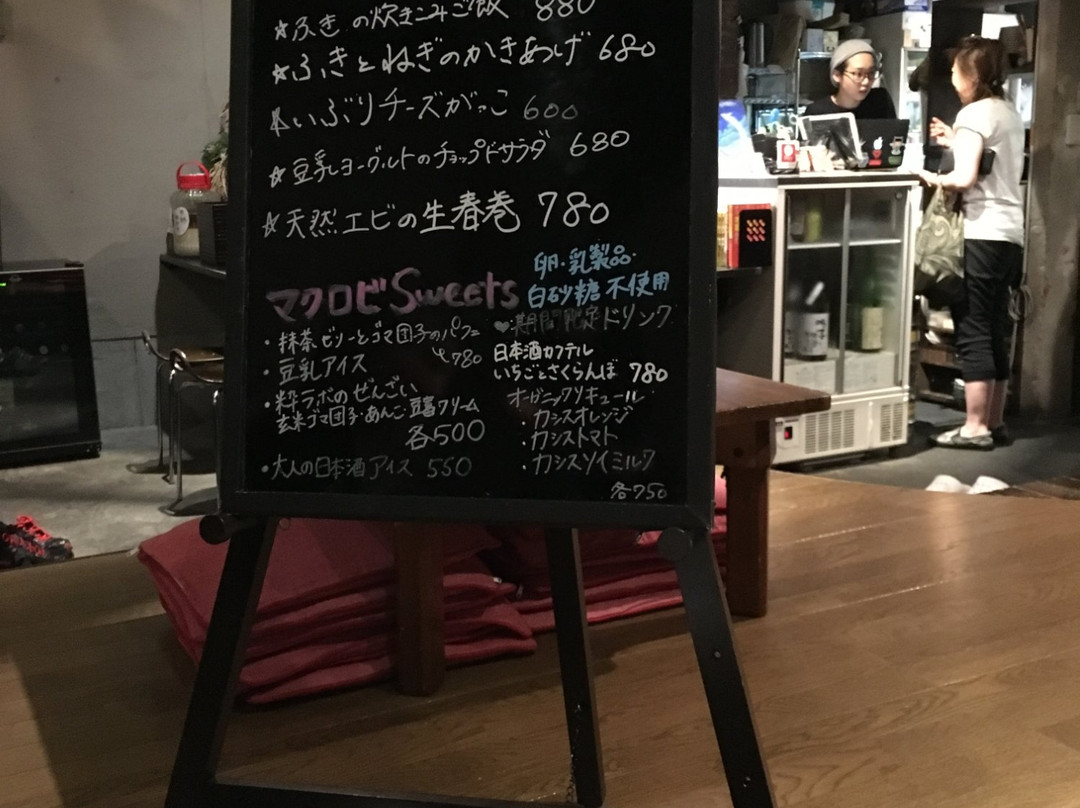 ☆ふきの炊きこみご飯 880
☆ふきとねぎのかきあげ 680
☆いぶりチーズがっこ 600
☆豆乳ヨーグルトのチョップドサラダ 680
☆天然エビの生春巻 780
マクロビSweets
卵・乳製品・
白砂糖不使用
・抹茶ゼリーとゴマ団子のパフェ
¥780
・豆乳アイス
・粋ラボのぜんざい
玄米ゴマ団子・あんこ・豆富クリーム
各500
・大人の日本酒アイス 550
♥期間限定ドリンク
日本酒カクテル
いちごとさくらんぼ 780
オーガニックリキュール
・カシスオレンジ
・カシストマト
・カシスソイミルク
各750